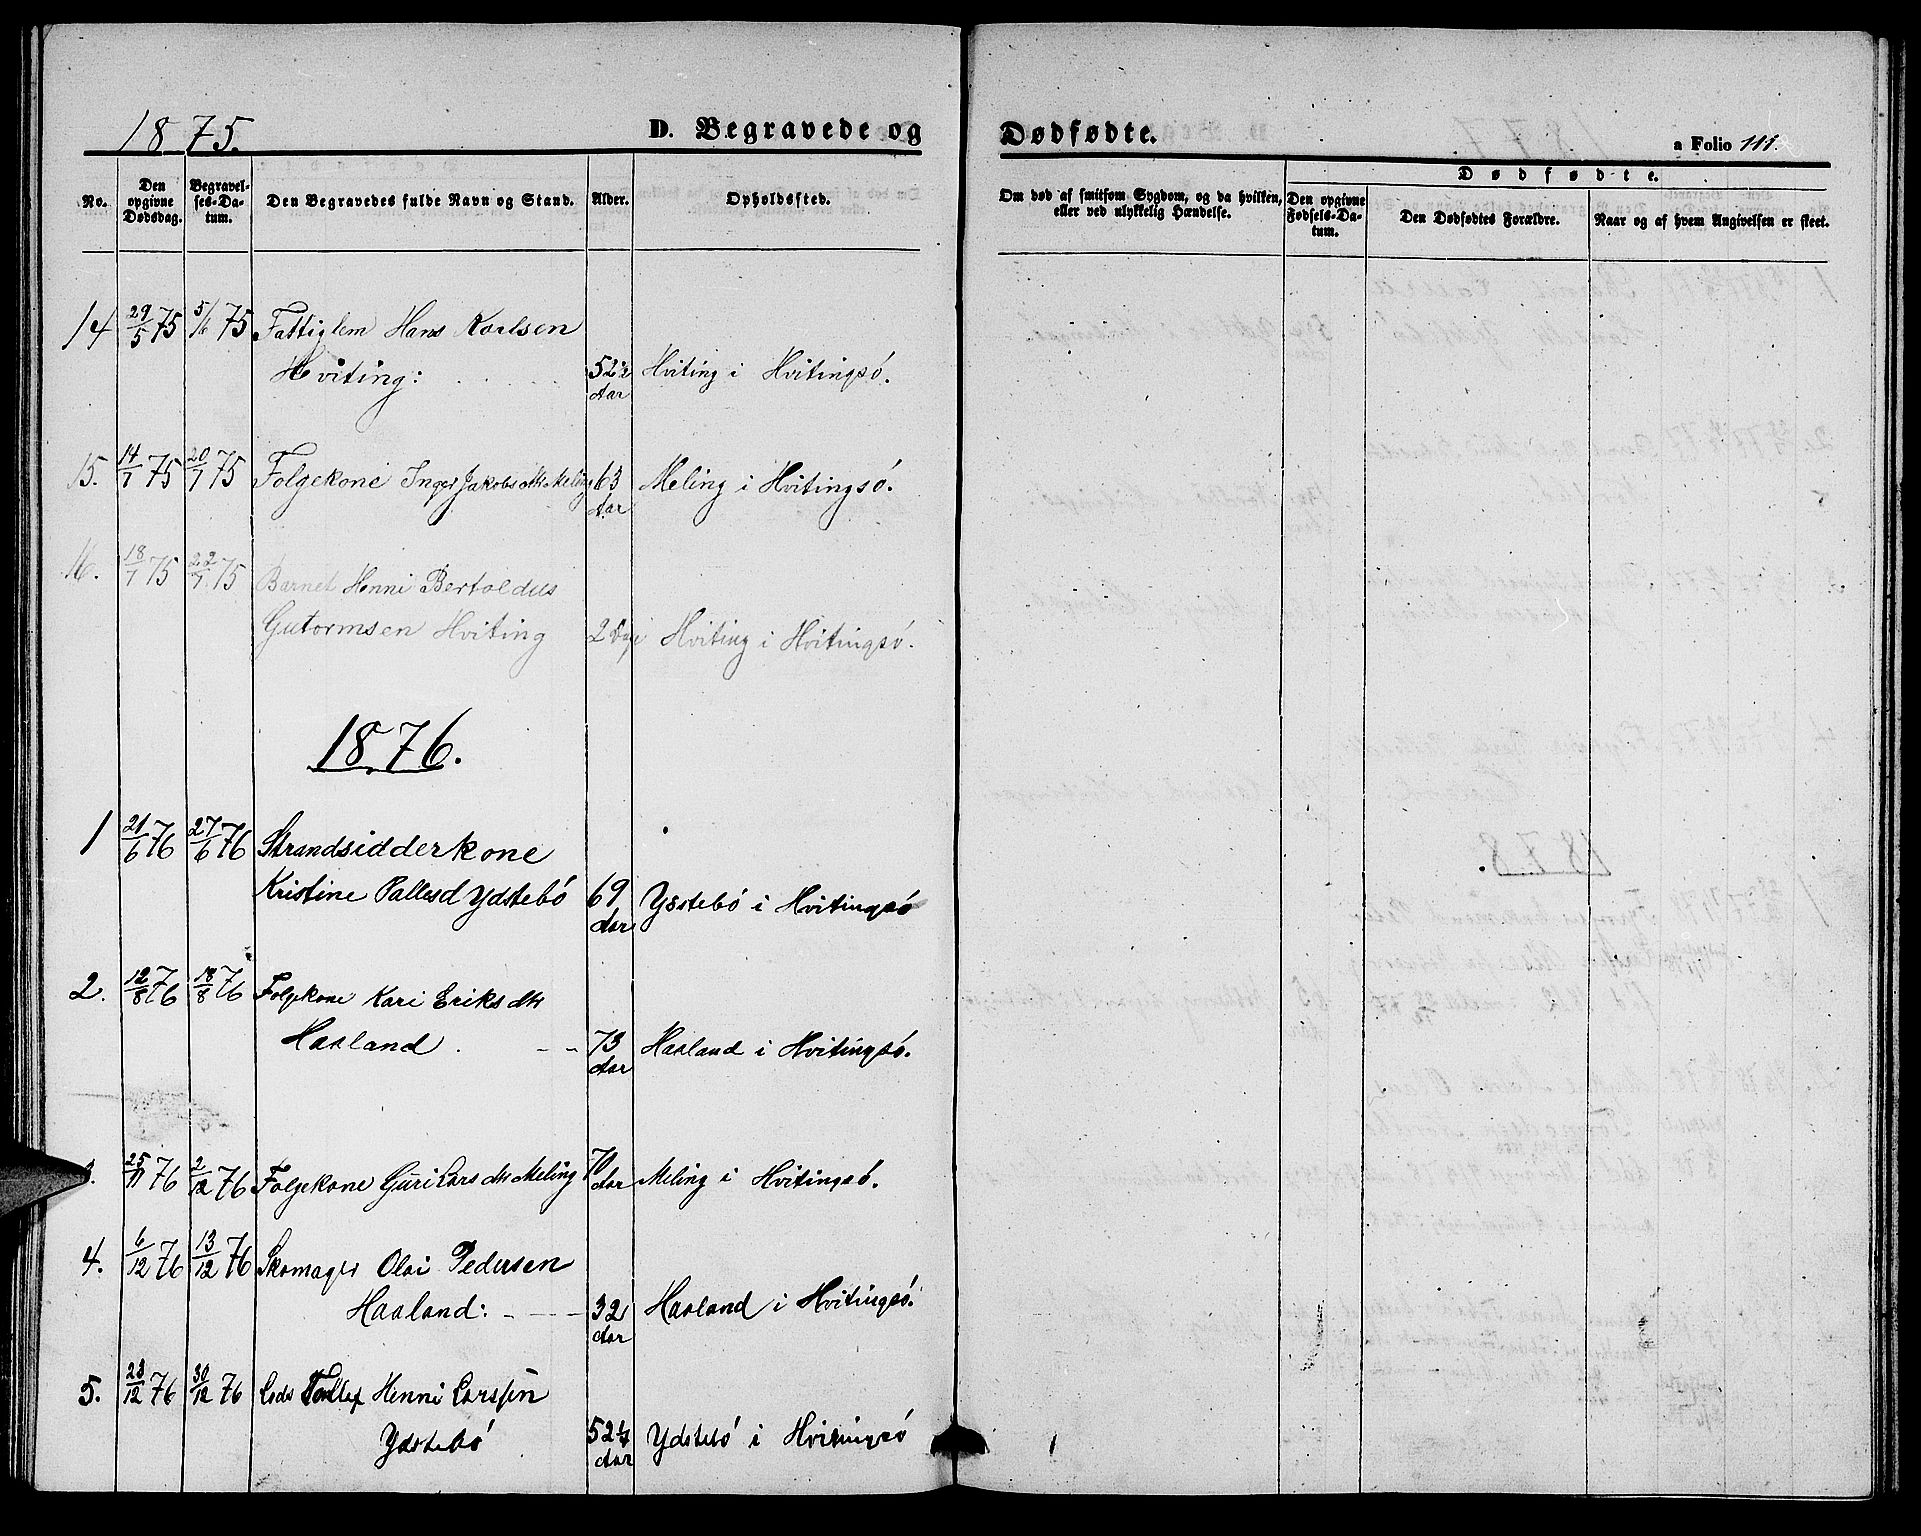 1875.
D. Begravede og
Dødfødte.
a Folio 111.
No.
Den opgivne Dødsdag.
Begravelses-Datum.
Den Begravedes fulde Navn og Stand.
Alder.
Opholdssted.
Om død af smitsom Sygdom, og da hvilken, eller ved ulykkelig Hændelse.
Dødfødte.
Den opgivne Fødsels-Datum.
Den Dødfødtes Forældre.
Naar og af hvem Angivelsen er skeet.
14 29/5 75 5/6 75 Fattiglem Hans Karlsen
Hviting: 52½ Aar Hviting i Hvitingsó.
15. 14/7 75 20/7 75 Folgekone Inger Jakobsdtr Meling 63 Aar Meling i Hvitingsó.
16. 18/7 75 22/7 75 Barnet Henni Bertoldus
Gutormsen Hviting 2 Dage Hviting i Hvitingsó.
1876.
1 21/6 76 27/6 76 Strandsidderkone
Kristine Pallesd Ydstebó 69 Aar Ydstebó i Hvitingsó
2. 12/8 76 18/8 76 Folgekone Kari Eriksdtr
Haaland 73 Aar Haaland i Hvitingsó.
3. 25/11 76 2/12 76 Folgekone Guri Larsdtr Meling 70 Aar Meling i Hvitingsó.
4. 6/12 76 13/12 76 Skomager Olai Pedersen
Haaland: 32 Aar Haaland i Hvitingsó.
5. 23/12 76 30/12 76 Lods Henni Larssen
Ydstebó 52½ Aar Ydstebó i Hvitingsó